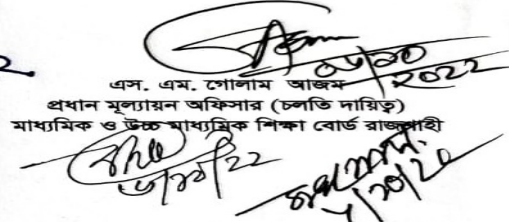 ০৬/১০
২০২২
এস. এম. গোলাম আজম
প্রধান মূল্যায়ন অফিসার (চলতি দায়িত্ব)
মাধ্যমিক ও উচ্চ মাধ্যমিক শিক্ষা বোর্ড রাজশাহী
৬/১০/২২